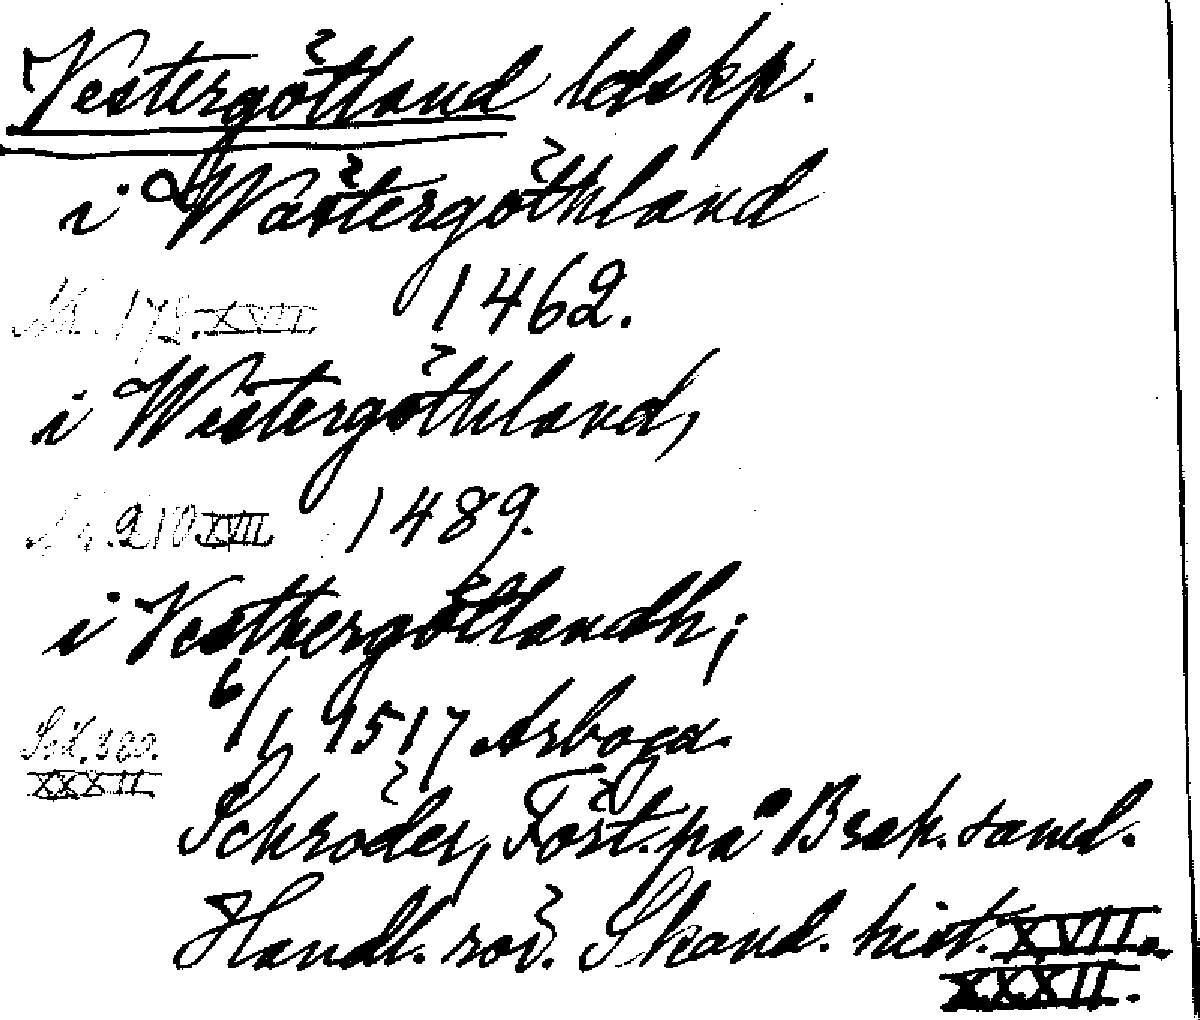 Vestergötland ldskp.
i Wästergöthland
1462.
XVII
i Westergöthland,
210 XVII 1489.
i Vesthergötlandh;
6/1 1517 Arboga.
XXXII
Schröder, Föst. på Besk. saml.
Handl. rör. Skand. hist. XVII o.
XXXII.